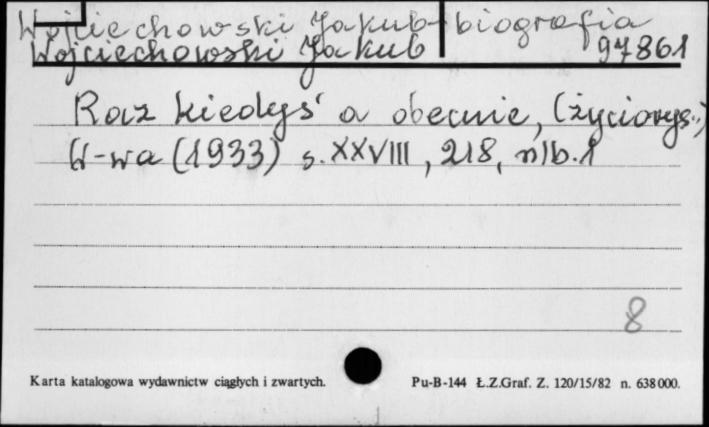 Wojciechowski Jakub - biografia
Wojciechowski Jakub 97861
Raz kiedyś a obecnie, (życiorys..)
W-wa (1933) s. XXVIII, 218, nlb. 1
8
Karta katalogowa wydawnictw ciągłych i zwartych. Pu-B-144 Ł.Z.Graf. Z. 120/15/82 n. 638000.